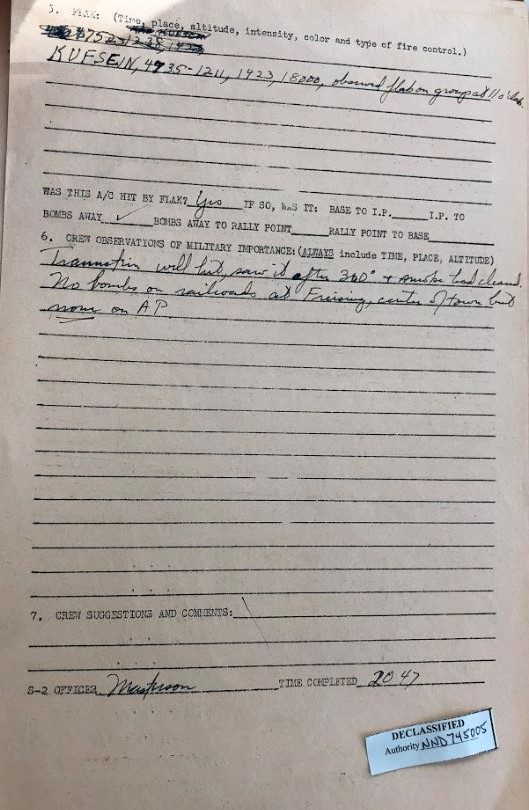 5. FLAK: (Time, place, altitude, intensity, color and type of fire control.)
KUFSEIN, 4735-1211, 1423, 18000, observed flak on group at 11 o'clock.
WAS THIS A/C HIT BY FLAK? Yes IF SO, WAS IT: BASE TO I.P.____ I.P. TO
BOMBS AWAY ✓ BOMBS AWAY TO RALLY POINT____ RALLY POINT TO BASE____
6. CREW OBSERVATIONS OF MILITARY IMPORTANCE: (ALWAYS include TIME, PLACE, ALTITUDE)
well hit, saw it after 360° & smoke had cleared.
No bombs on railroads at Freising, center of town but
none on AP
7. CREW SUGGESTIONS AND COMMENTS:
S-2 OFFICER Masterson TIME COMPLETED 2047
DECLASSIFIED
Authority NND 745005